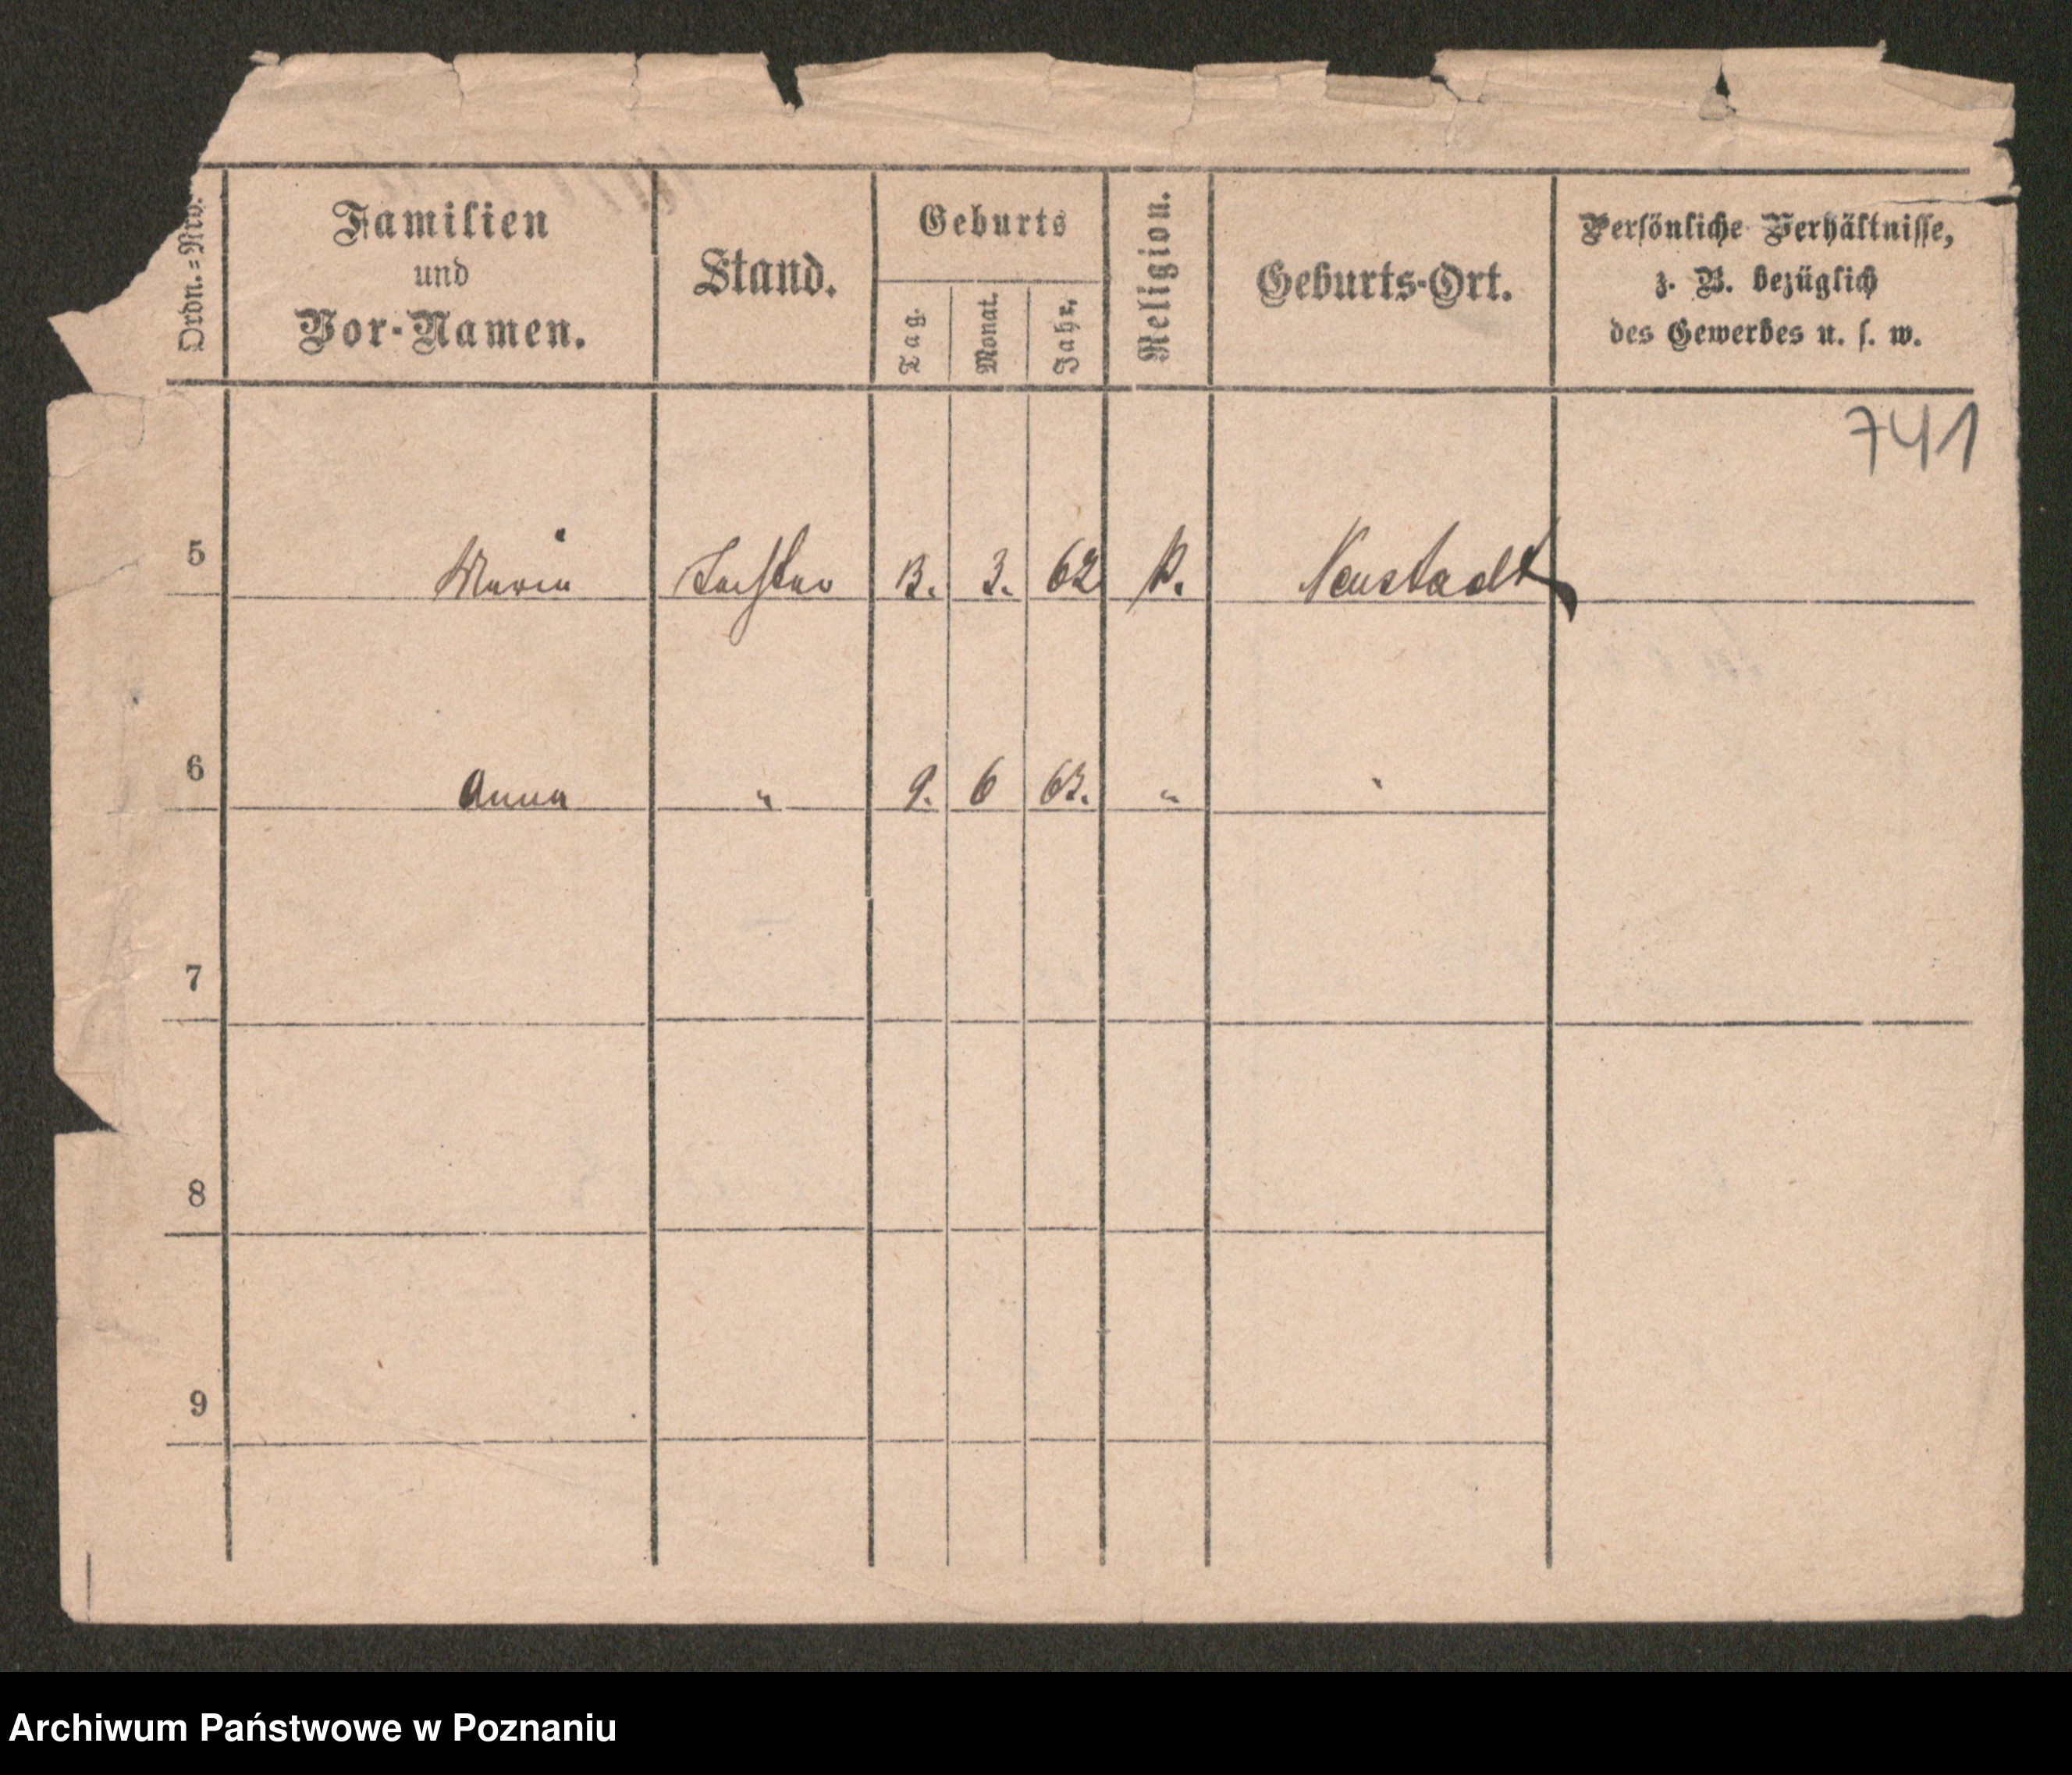 Ordn.=Nro.
Familien
und
Vor-Namen.
Stand.
Geburts
Tag.
Monat.
Jahr.
Religion.
Geburts-Ort.
Persönliche Verhältnisse,
z. B. bezüglich
des Gewerbes u. s. w.
741
5 Maria Tochter 13. 3. 62 k. Neustadt
6 Anna " 9. 6 63. " "
7
8
9
Archiwum Państwowe w Poznaniu